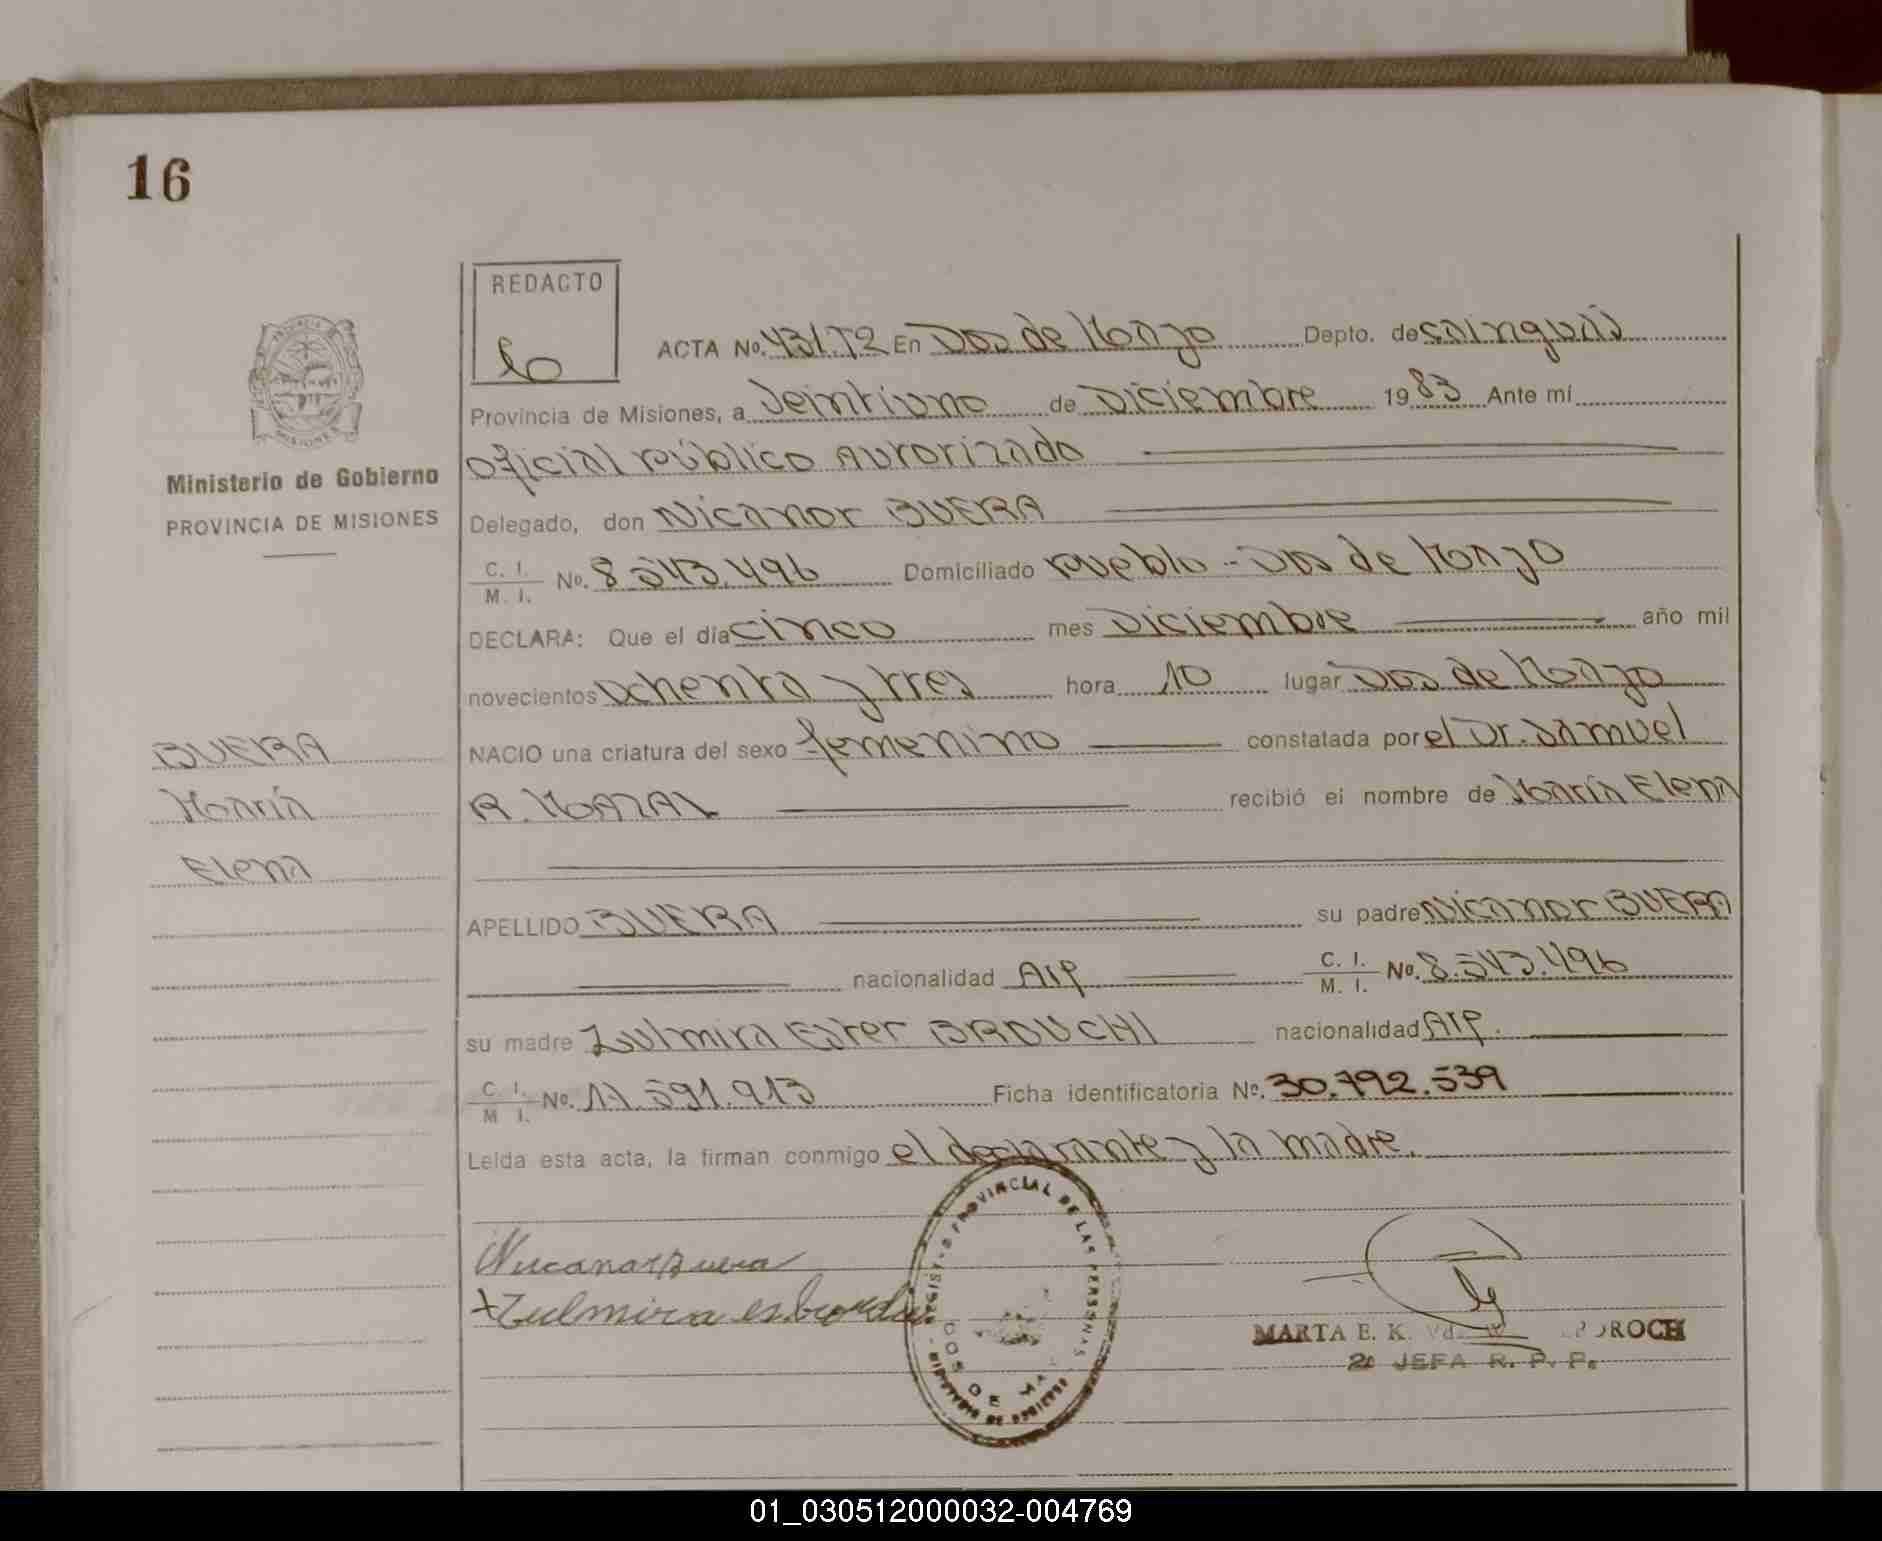 16
REDACTO
ACTA No. 431.T2 En Dos de Mayo Depto. de cainguás
PROVINCIA DE MISIONES
Provincia de Misiones, a Veintiuno de Diciembre 1983 Ante mí
oficial público Autorizado
Ministerio de Gobierno
PROVINCIA DE MISIONES
Delegado, don Nicanor BUERA
C. I.
M. I. No. 8.543.496 Domiciliado Pueblo - Dos de Mayo
DECLARA: Que el día cinco mes Diciembre año mil
novecientos ochenta y tres hora 10 lugar Dos de Mayo
BUERA
NACIO una criatura del sexo femenino constatada por el Dr. Samuel
María
R. MAZAL recibió el nombre de María Elena
Elena
APELLIDO BUERA su padre Nicanor BUERA
nacionalidad Arg C. I.
M. I. No. 8.543.496
su madre Zulmira Ester BROUCHI nacionalidad Arg.
C. I.
M I. No. 11.591.913 Ficha identificatoria No. 30.792.539
Leida esta acta, la firman conmigo el declarante y la madre.
REGISTRO PROVINCIAL DE LAS PERSONAS
MINISTERIO DE GOBIERNO
DOS DE MA
Nicanor Buera
+Zulmira
MARTA E. K.
2ª JEFA R. P. P.
01_030512000032-004769